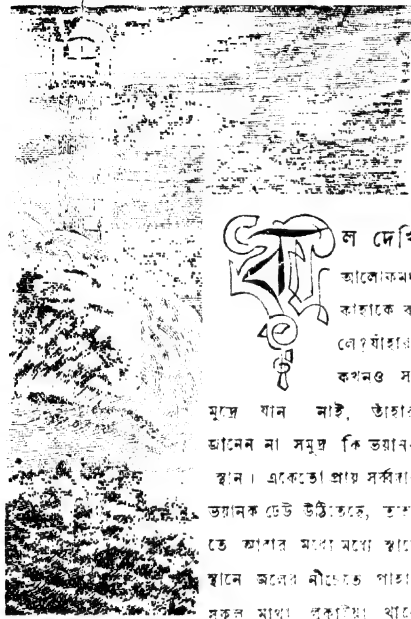 ল দেখি
আলোকমঞ্চ
কাহাকে ব
লে? যাঁহারা
কখনও স
মুদ্রে যান নাই, তাঁহারা
জানেন না সমুদ্র কি ভয়ানক
স্থান। একেতো প্রায় সর্ব্বদা
ভয়ানক ঢেউ উঠিতেছে, তাহা
তে আবার মধ্যে মধ্যে স্থানে
স্থানে জলের নীচেতে পাহা
সকল মাথা লুকাইয়া থাকে